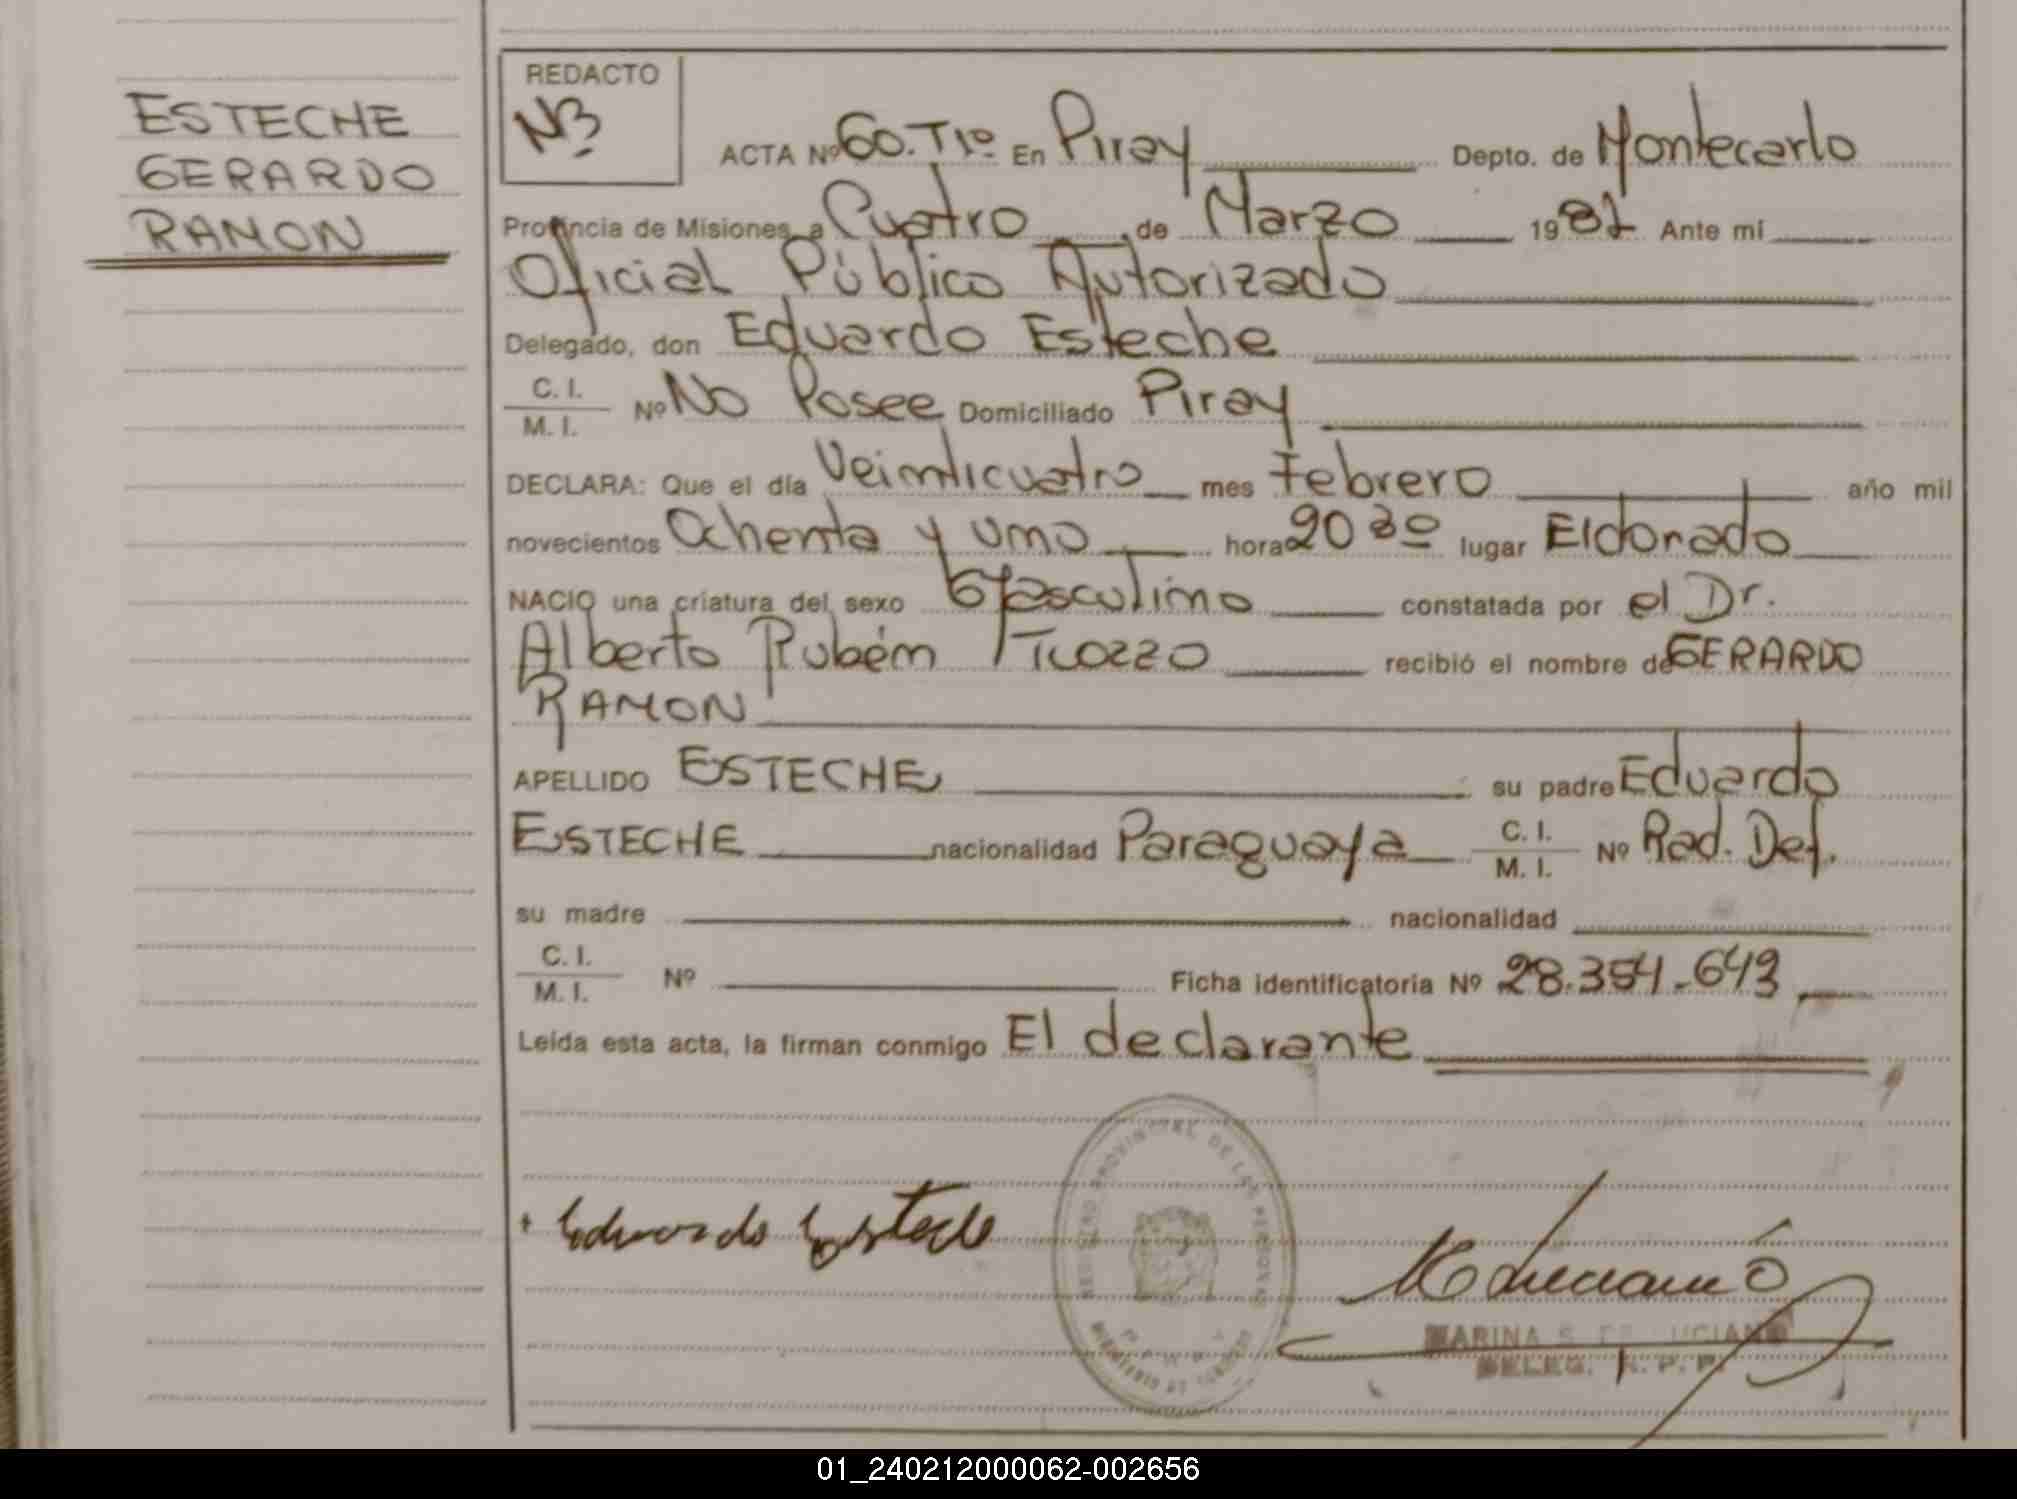 ESTECHE
GERARDO
RAMON
REDACTO
ACTA Nº 60. Tº En Piray Depto. de Montecarlo
Provincia de Misiones a Cuatro de Marzo 1981 Ante mí
Oficial Público Autorizado
Delegado, don Eduardo Esteche
C. I.
M. I.
Nº No Posee Domiciliado Piray
DECLARA: Que el día Veinticuatro mes Febrero año mil
novecientos Ochenta y uno hora 20 30 lugar Eldorado
NACIO una criatura del sexo Masculino constatada por el Dr.
Alberto Rubém recibió el nombre de GERARDO
RAMON
APELLIDO ESTECHE su padre Eduardo
ESTECHE nacionalidad Paraguaya C. I. M. I. Nº Rad. Def.
su madre nacionalidad
C. I.
M. I.
Nº Ficha identificatoria Nº 28.354.643
Leída esta acta, la firman conmigo El declarante
REGISTRO PROVINCIAL DE LAS PERSONAS
MINISTERIO DE GOBIERNO
Eduardo Esteche
MARINA S. DE LUCIANO
DELEG. R. P. P.
01_240212000062-002656